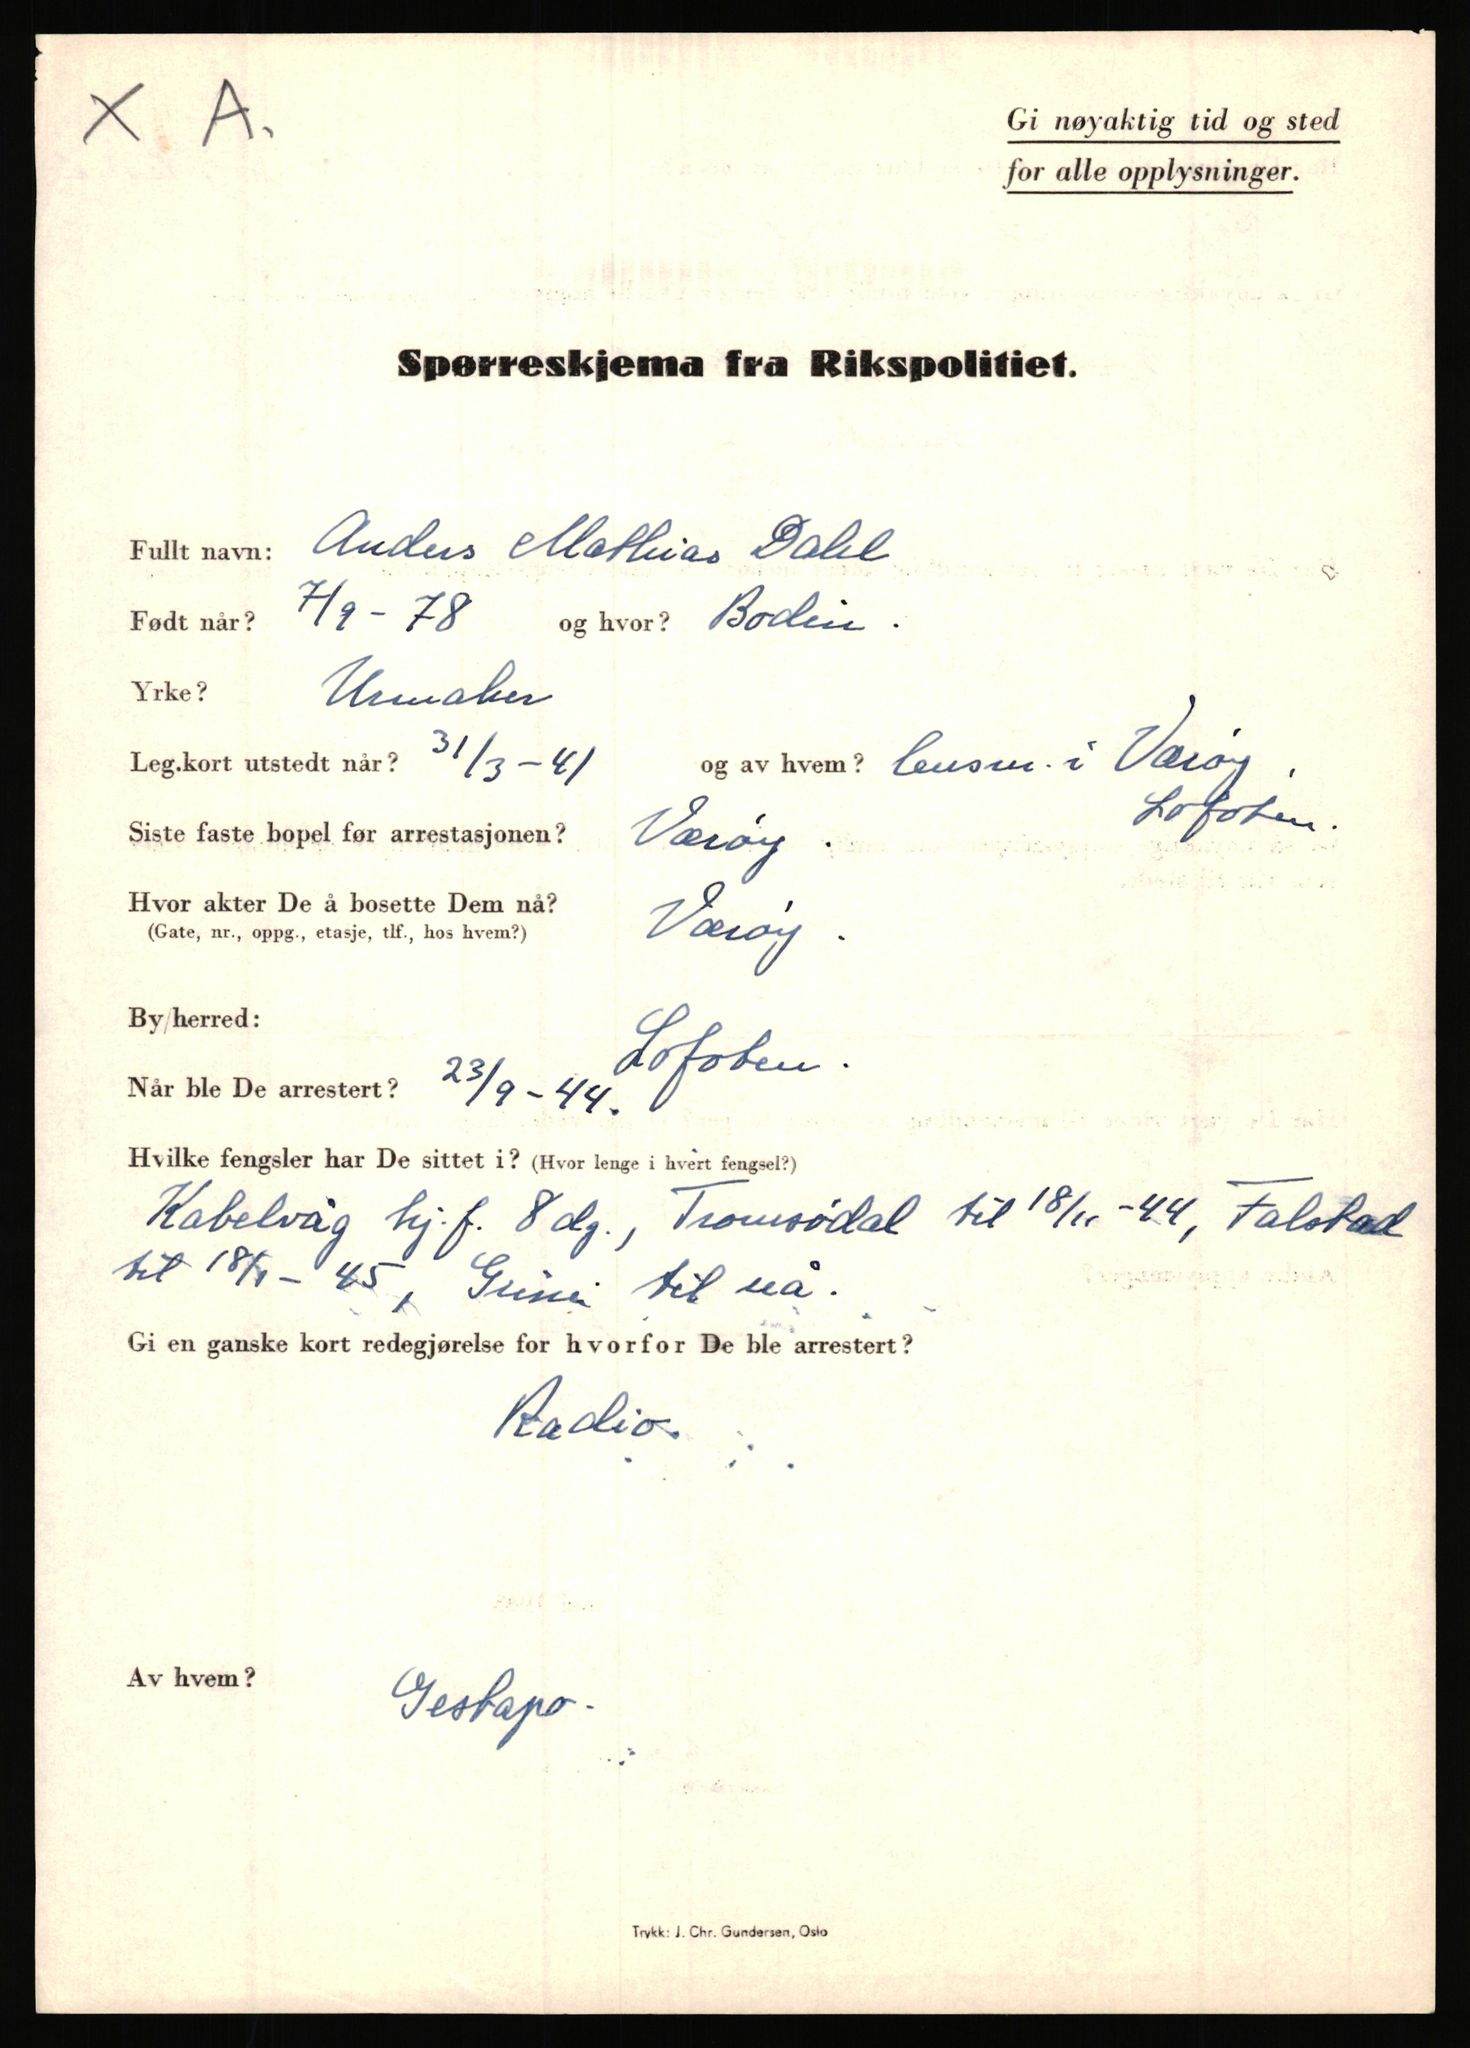 X A.
Gi nøyaktig tid og sted
for alle opplysninger.
Spørreskjema fra Rikspolitiet.
Fullt navn: Anders Mathias Dahl
Født når? 7/9 - 78 og hvor? Bodin.
Yrke? Urmaker
Leg.kort utstedt når? 31/3 - 41 og av hvem? lensm. i Værøy,
Lofoten.
Siste faste bopel før arrestasjonen? Værøy.
Hvor akter De å bosette Dem nå? Værøy.
(Gate, nr., oppg., etasje, tlf., hos hvem?)
By/herred: Lofoten.
Når ble De arrestert? 23/9 - 44.
Hvilke fengsler har De sittet i? (Hvor lenge i hvert fengsel?)
Kabelvåg hj. f. 8 dg., Tromsødal til 18/11 - 44, Falstad
til 18/1 - 45, Grini til nå.
Gi en ganske kort redegjørelse for hvorfor De ble arrestert?
Radio.
Av hvem? Gestapo.
Trykk: J. Chr. Gundersen, Oslo